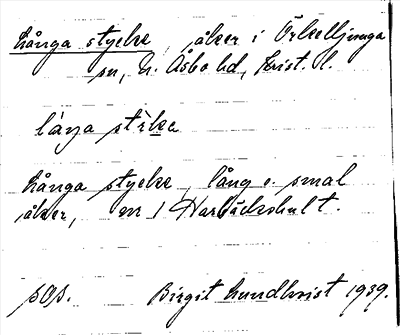 Långa stycke, åker i Örkelljunga
sn, N. Åsbo hd, Krist. l.
låŋa stĩkə
Långa stycke, lång o. smal
åker, en 1 Harbäckshult.
sOp. Birgit Lundkvist 1939.